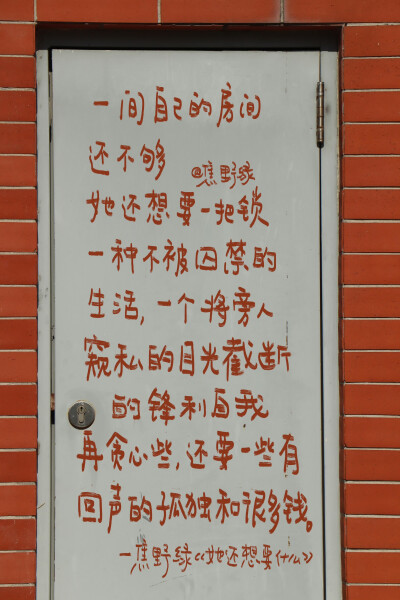 一间自己的房间
还不够
@焦野绿
她还想要一把锁
一种不被囚禁的
生活,一个将旁人
窥私的目光截断
的锋利自我
再贪心些,还要一些有
回声的孤独和很多钱。
—焦野绿《她还想要什么》